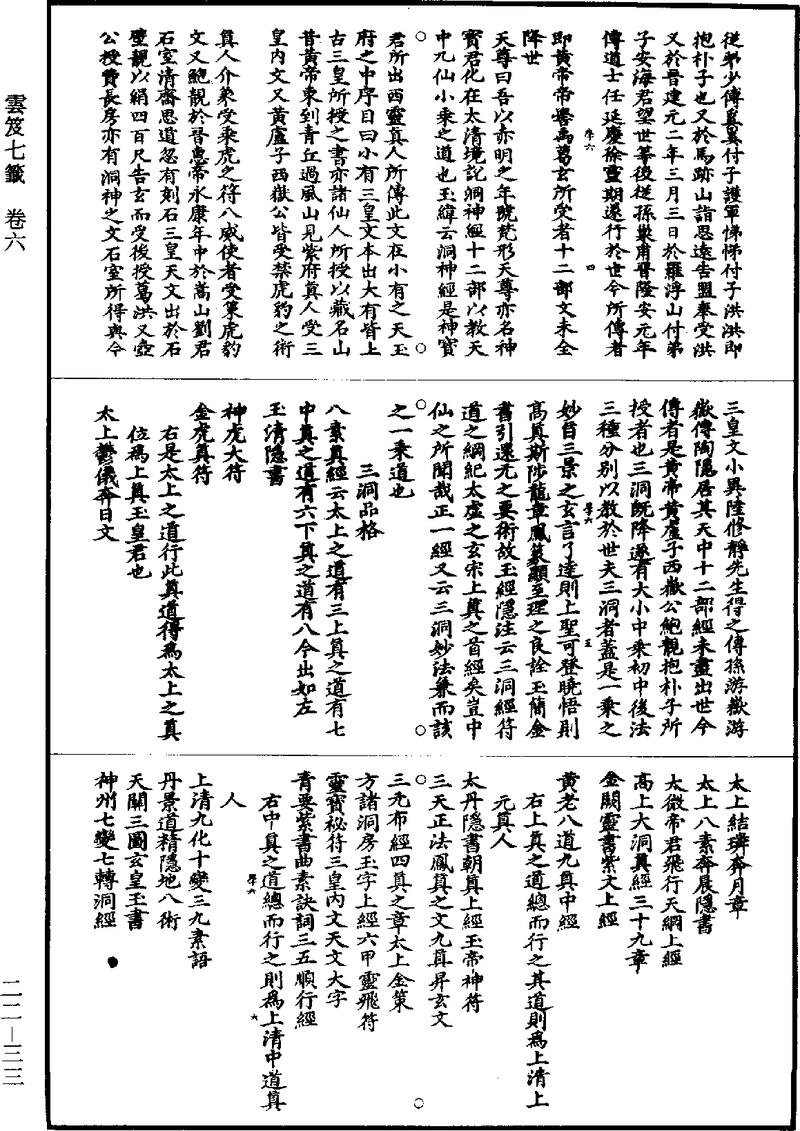 雲笈七籤　卷六
從弟少傅奚奚付子護軍悌悌付子洪洪即
抱朴子也又於馬跡山詣思遠告盟奉受洪
又於晉建元二年三月三日於羅浮山付弟
子安海君望世等後從孫巢甫晉隆安元年
傳道士任延慶徐靈期遂行於世今所傳者
學六
四
即黃帝帝嚳禹葛玄所受者十二部文未全
降世
天尊曰吾以赤明之年號梵形天尊亦名神
寶君化在太清境說洞神經十二部以教天
中九仙小乘之道也玉緯云洞神經是神寶
君所出西靈真人所傳此文在小有之天玉
府之中序目曰小有三皇文本出大有皆上
古三皇所授之書亦諸仙人所授以藏名山
昔黃帝東到青丘過風山見紫府真人受三
皇內文又黃盧子西嶽公皆受禁虎豹之術
真人介象受乘虎之符八威使者受策虎豹
文又鮑靚於晉惠帝永康年中於嵩山劉君
石室清齋思道忽有刻石三皇天文出於石
壁靚以絹四百尺告玄而受後授葛洪又壺
公授費長房亦有洞神之文石室所得與今
三皇文小異陸修靜先生得之傳孫游嶽游
嶽傳陶隱居其天中十二部經未盡出世今
傳者是黃帝黃盧子西嶽公鮑靚抱朴子所
授者也三洞既降遂有大小中乘初中後法
三種分別以教於世夫三洞者蓋是一乘之
學六
五
妙旨三景之玄言了達則上聖可登曉悟則
高真斯陟龍章鳳篆顯至理之良詮玉簡金
書引還元之要術故玉經隱注云三洞經符
道之綱紀太虛之玄宗上真之首經矣豈中
仙之所聞哉正一經又云三洞妙法兼而該
之一乘道也
三洞品格
八素真經云太上之道有三上真之道有七
中真之道有六下真之道有八今出如左
玉清隱書
神虎大符
金虎真符
右是太上之道行此真道得為太上之真
位為上真玉皇君也
太上鬱儀奔日文
太上結璘奔月章
太上八素奔晨隱書
太微帝君飛行天網上經
高上大洞真經三十九章
金闕靈書紫文上經
黃老八道九真中經
右上真之道總而行之其道則為上清上
元真人
太丹隱書朝真上經玉帝神符
三天正法鳳真之文九真昇玄文
三九布經四真之章太上金策
方諸洞房玉字上經六甲靈飛符
靈寶祕符三皇內文天文大字
青要紫書曲素訣詞三五順行經
右中真之道總而行之則為上清中道真
學六
六
人
上清九化十變三九素語
丹景道精隱地八術
天關三圖玄皇玉書
神州七變七轉洞經
二二—三三